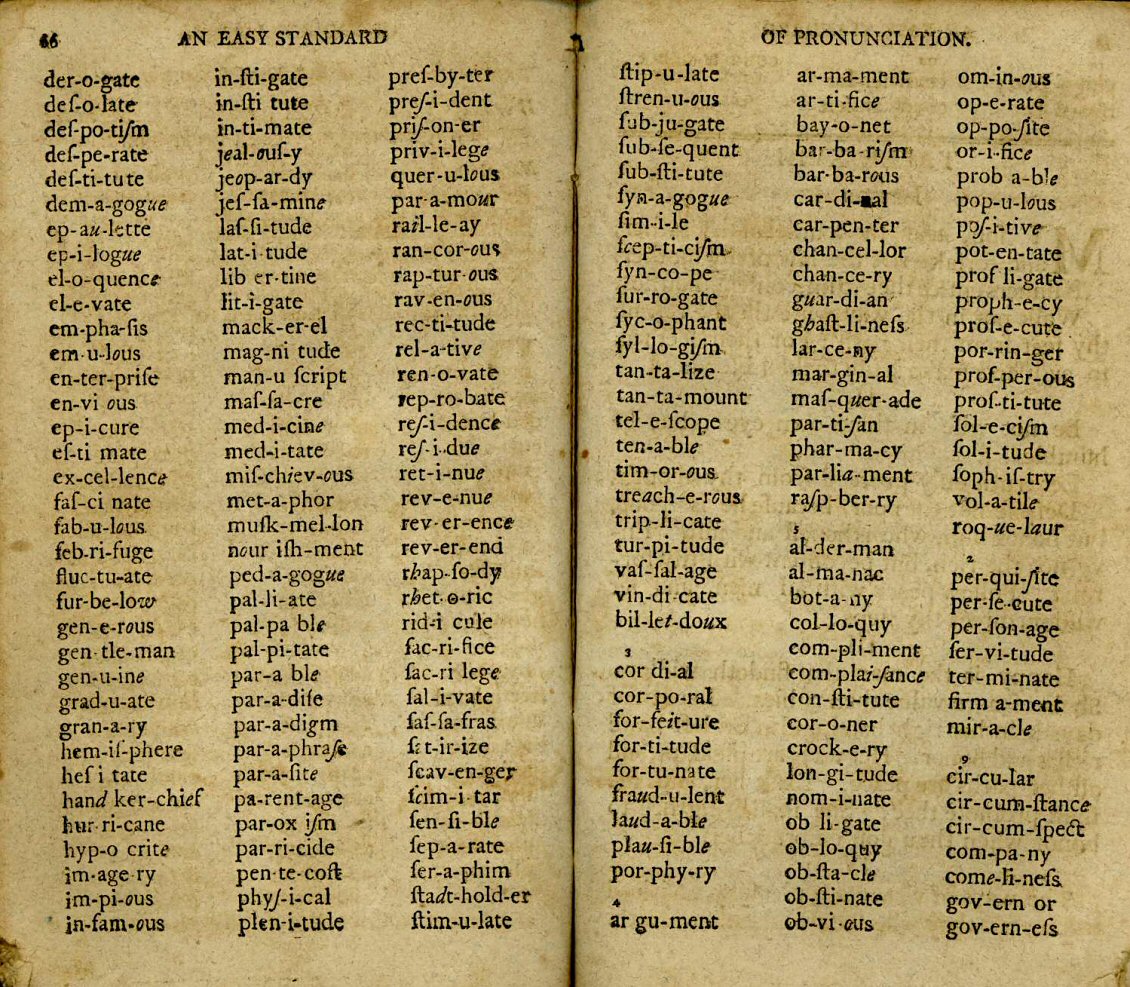 66
AN EASY STANDARD
der-o-gate
deſ-o-late
deſ-po-tiſm
deſ-pe-rate
deſ-ti-tute
dem-a-gogue
ep-au-lette
ep-i-logue
el-o-quence
el-e-vate
em-pha-ſis
em-u-lous
en-ter-priſe
en-vi ous
ep-i-cure
eſ-ti mate
ex-cel-lence
faſ-ci nate
fab-u-lous
feb-ri-fuge
fluc-tu-ate
fur-be-low
gen-e-rous
gen-tle-man
gen-u-ine
grad-u-ate
gran-a-ry
hem-iſ-phere
heſ i tate
hand ker-chief
hur-ri-cane
hyp-o crite
im-age ry
im-pi-ous
in-fam-ous
in-ſti-gate
in-ſti tute
in-ti-mate
jeal-ouſ-y
jeop-ar-dy
jeſ-ſa-mine
laſ-ſi-tude
lat-i-tude
lib er-tine
lit-i-gate
mack-er-el
mag-ni tude
man-u ſcript
maſ-ſa-cre
med-i-cine
med-i-tate
miſ-chiev-ous
met-a-phor
muſk-mel-lon
nour iſh-ment
ped-a-gogue
pal-li-ate
pal-pa ble
pal-pi-tate
par-a ble
par-a-diſe
par-a-digm
par-a-phraſe
par-a-ſite
pa-rent-age
par-ox iſm
par-ri-cide
pen-te-coſt
phyſ-i-cal
plen-i-tude
preſ-by-ter
preſ-i-dent
priſ-on-er
priv-i-lege
quer-u-lous
par-a-mour
rail-le-ay
ran-cor-ous
rap-tur-ous
rav-en-ous
rec-ti-tude
rel-a-tive
ren-o-vate
rep-ro-bate
reſ-i-dence
reſ-i-due
ret-i-nue
rev-e-nue
rev-er-ence
rev-er-end
rhap-ſo-dy
rhet-o-ric
rid-i cule
ſac-ri-fice
ſac-ri lege
ſal-i-vate
ſaſ-ſa-fras
ſat-ir-ize
ſcav-en-ger
ſcim-i-tar
ſen-ſi-ble
ſep-a-rate
ſer-a-phim
ſtadt-hold-er
ſtim-u-late
OF PRONUNCIATION.
ſtip-u-late
ſtren-u-ous
ſub-ju-gate
ſub-ſe-quent
ſub-ſti-tute
ſyn-a-gogue
ſim-i-le
ſcep-ti-ciſm
ſyn-co-pe
ſur-ro-gate
ſyc-o-phant
ſyl-lo-giſm
tan-ta-lize
tan-ta-mount
tel-e-ſcope
ten-a-ble
tim-or-ous
treach-e-rous
trip-li-cate
tur-pi-tude
vaſ-ſal-age
vin-di-cate
bil-let-doux
3
cor di-al
cor-po-ral
for-feit-ure
for-ti-tude
for-tu-nate
fraud-u-lent
laud-a-ble
plau-ſi-ble
por-phy-ry
4
ar gu-ment
ar-ma-ment
ar-ti-fice
bay-o-net
bar-ba-riſm
bar-ba-rous
car-di-nal
car-pen-ter
chan-cel-lor
chan-ce-ry
guar-di-an
ghaſt-li-neſs
lar-ce-ny
mar-gin-al
maſ-quer-ade
par-ti-ſan
phar-ma-cy
par-lia-ment
raſp-ber-ry
5
al-der-man
al-ma-nac
bot-a-ny
col-lo-quy
com-pli-ment
com-plai-ſance
con-ſti-tute
cor-o-ner
crock-e-ry
lon-gi-tude
nom-i-nate
ob li-gate
ob-lo-quy
ob-ſta-cle
ob-ſti-nate
ob-vi-ous
om-in-ous
op-e-rate
op-po-ſite
or-i-fice
prob a-ble
pop-u-lous
poſ-i-tive
pot-en-tate
prof li-gate
proph-e-cy
proſ-e-cute
por-rin-ger
proſ-per-ous
proſ-ti-tute
ſol-e-ciſm
ſol-i-tude
ſoph-iſ-try
vol-a-tile
roq-ue-laur
2
per-qui-ſite
per-ſe-cute
per-ſon-age
ſer-vi-tude
ter-mi-nate
firm a-ment
mir-a-cle
9
cir-cu-lar
cir-cum-ſtance
cir-cum-ſpect
com-pa-ny
come-li-neſs
gov-ern or
gov-ern-eſs